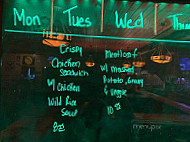 Mon Tues Wed Thu
Crispy
Chicken
Sandwich
w/ Chicken
Wild Rice
Soup
8
Meatloaf
w/ mashed
Potato, Gravy
& Veggie
10
menupix